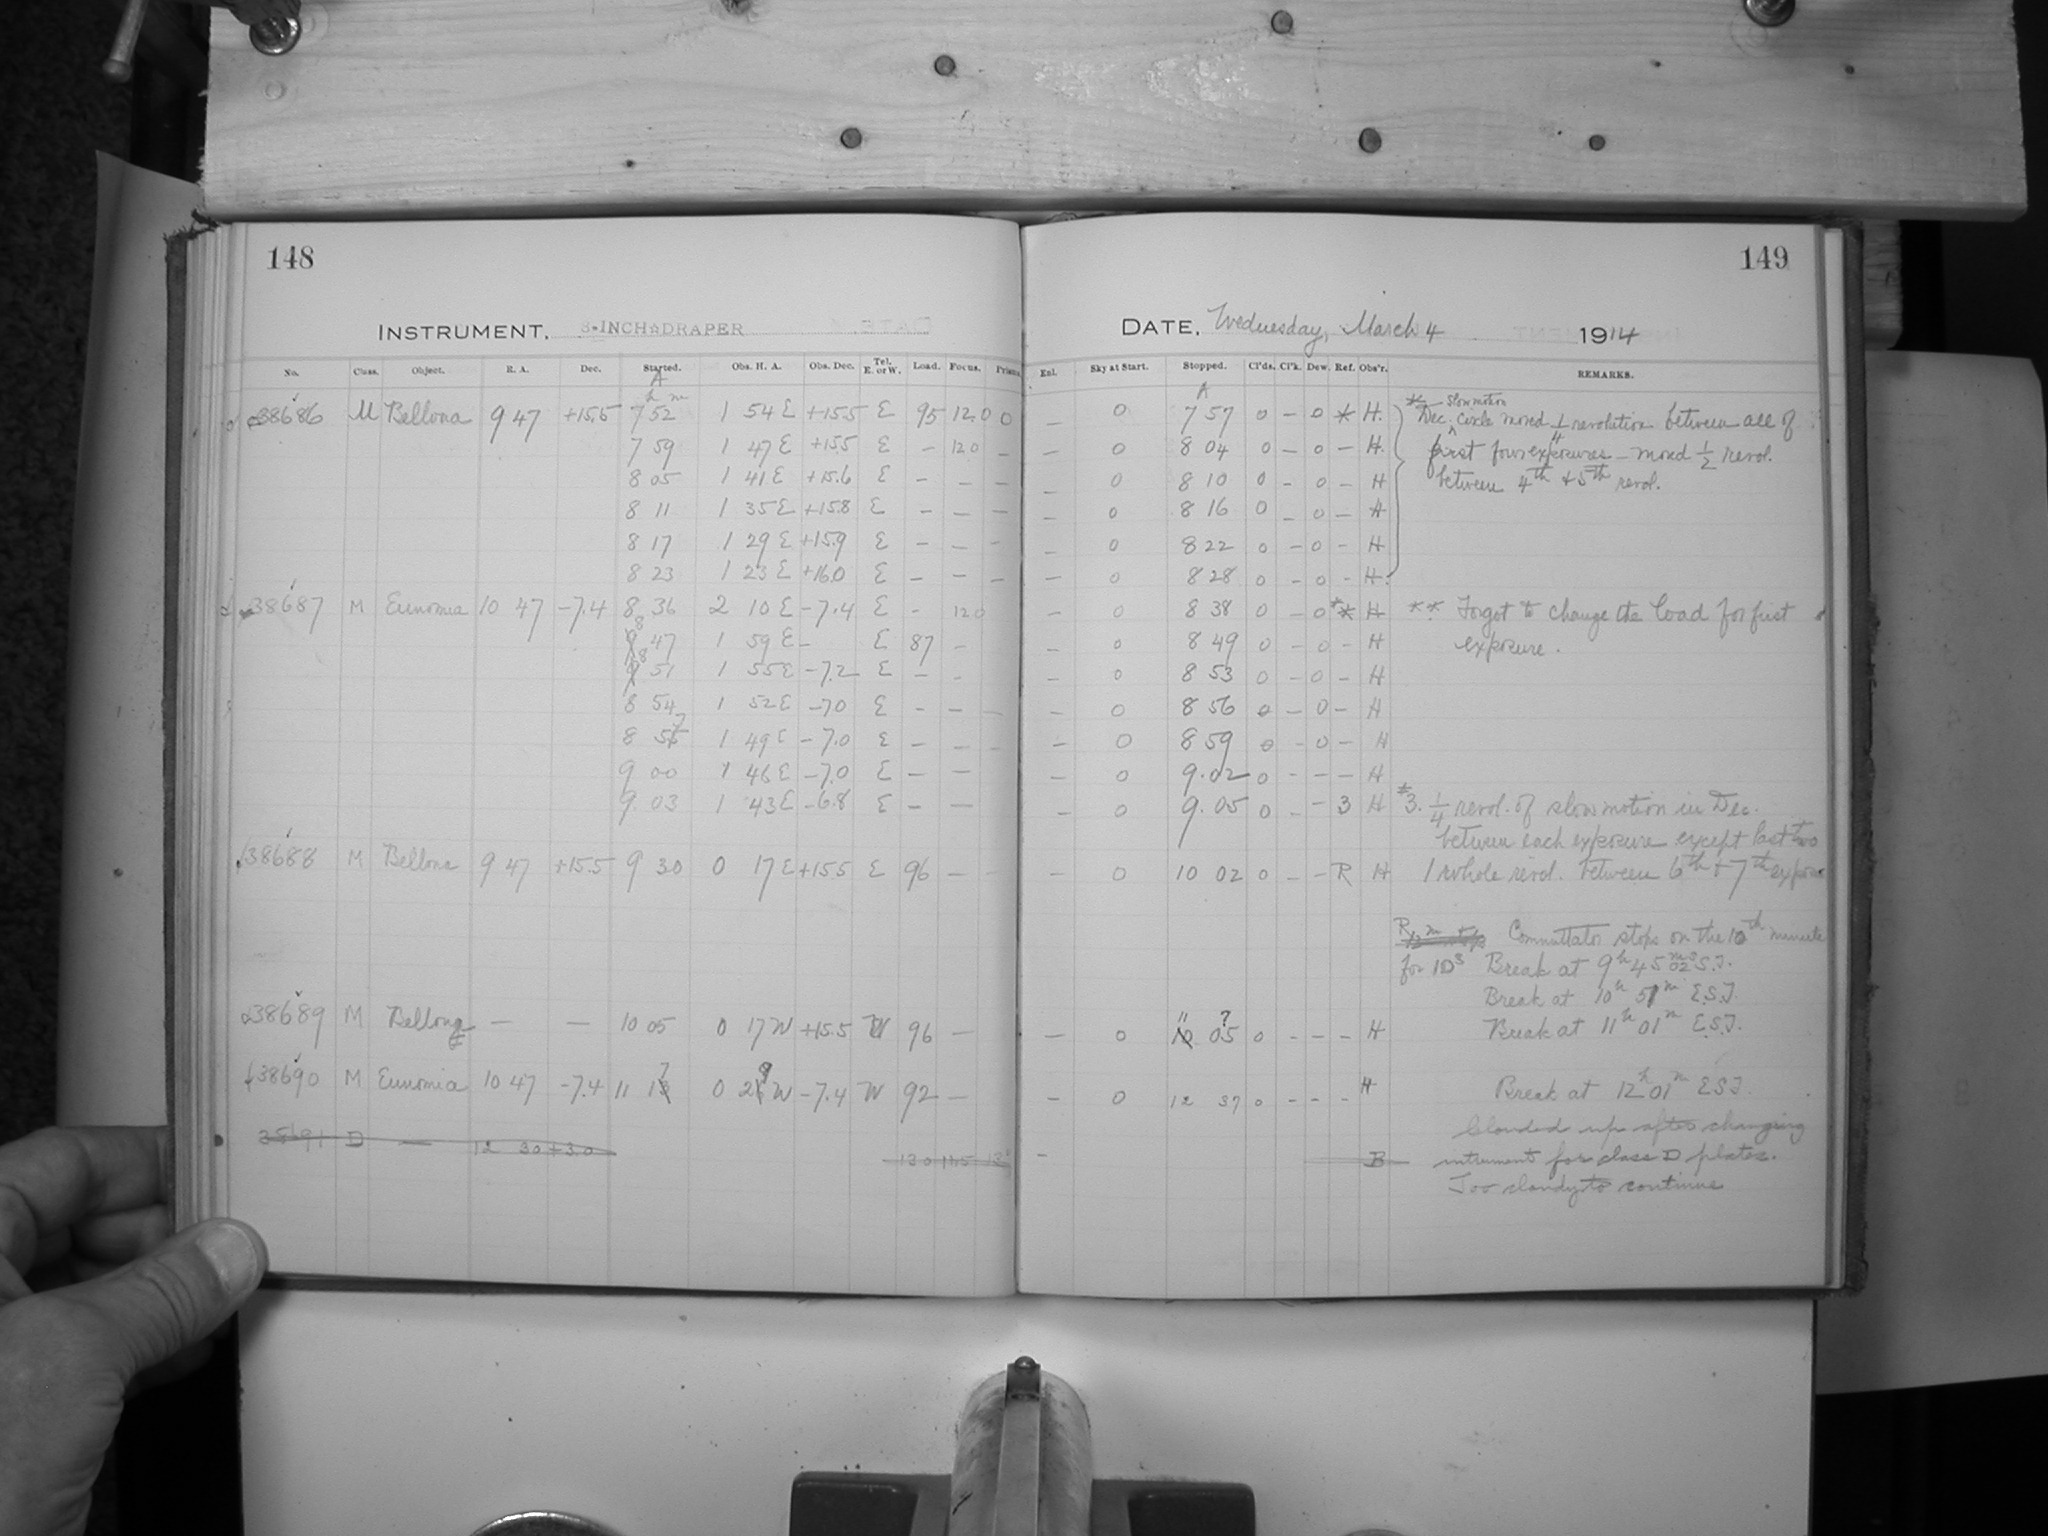 148
INSTRUMENT. 8-INCH☆DRAPER
No. Class. Object. R. A. Dec. Started. Obs. H. A. Obs. Dec. Tel. E. or W. Load. Focus. Prism
A
h m
38686 M Bellona 9 47 +15.5 7 52 1 54 E +15.5 E 95 12.0 0
7 59 1 47 E +15.5 E - 12.0 -
8 05 1 41 E +15.6 E - - -
8 11 1 35 E +15.8 E - - -
8 17 1 29 E +15.9 E - - -
8 23 1 23 E +16.0 E - - -
38687 M Eunomia 10 47 -7.4 8 36 2 10 E -7.4 E - 12.0
8 47 1 59 E - E 87 -
8 51 1 55 E -7.2 E - -
8 54 1 52 E -7.0 E - - -
8 57 1 49 E -7.0 E - - -
9 00 1 46 E -7.0 E - -
9 03 1 43 E -6.8 E - -
38688 M Bellona 9 47 +15.5 9 30 0 17 E +15.5 E 96 - -
38689 M Bellona — — 10 05 0 17 W +15.5 W 96 -
38690 M Eunomia 10 47 -7.4 11 17 0 29 W -7.4 W 92 -
38691 D — 12 30 +30 130 11.5
149
DATE. Wednesday, March 4 1914
Enl. Sky at Start. Stopped. Cl'ds. Cl'k. Dew. Ref. Obs'r. REMARKS.
A
- 0 7 57 0 - 0 * H. * Dec. slow motion circle moved 1/4 revolution between all of
- 0 8 04 0 - 0 - H. first four exposures - moved 1/2 revol.
- 0 8 10 0 - 0 - H between 4th + 5th revol.
- 0 8 16 0 - 0 - H
- 0 8 22 0 - 0 - H
- 0 8 28 0 - 0 - H.
- 0 8 38 0 - 0 ** H ** Forgot to change the load for first
- 0 8 49 0 - 0 - H exposure.
- 0 8 53 0 - 0 - H
- 0 8 56 0 - 0 - H
- 0 8 59 0 - 0 - H
- 0 9.02 0 - - - H
- 0 9.05 0 - 3 H *3. 1/4 revol. of slow motion in Dec.
between each exposure except last two
- 0 10 02 0 - - R H 1 whole revol. between 6th + 7th
R Commutator stops on the 10th minute
for 1D3 Break at 9h 45m 02s S.T.
Break at 10h 51m E.S.T.
- 0 11 05? 0 - - - H Break at 11h 01m E.S.T.
- 0 12 37 0 - - - H Break at 12h 01m E.S.T.
Clouded up after changing
- B intrument for class D plates.
Too cloudy to continue